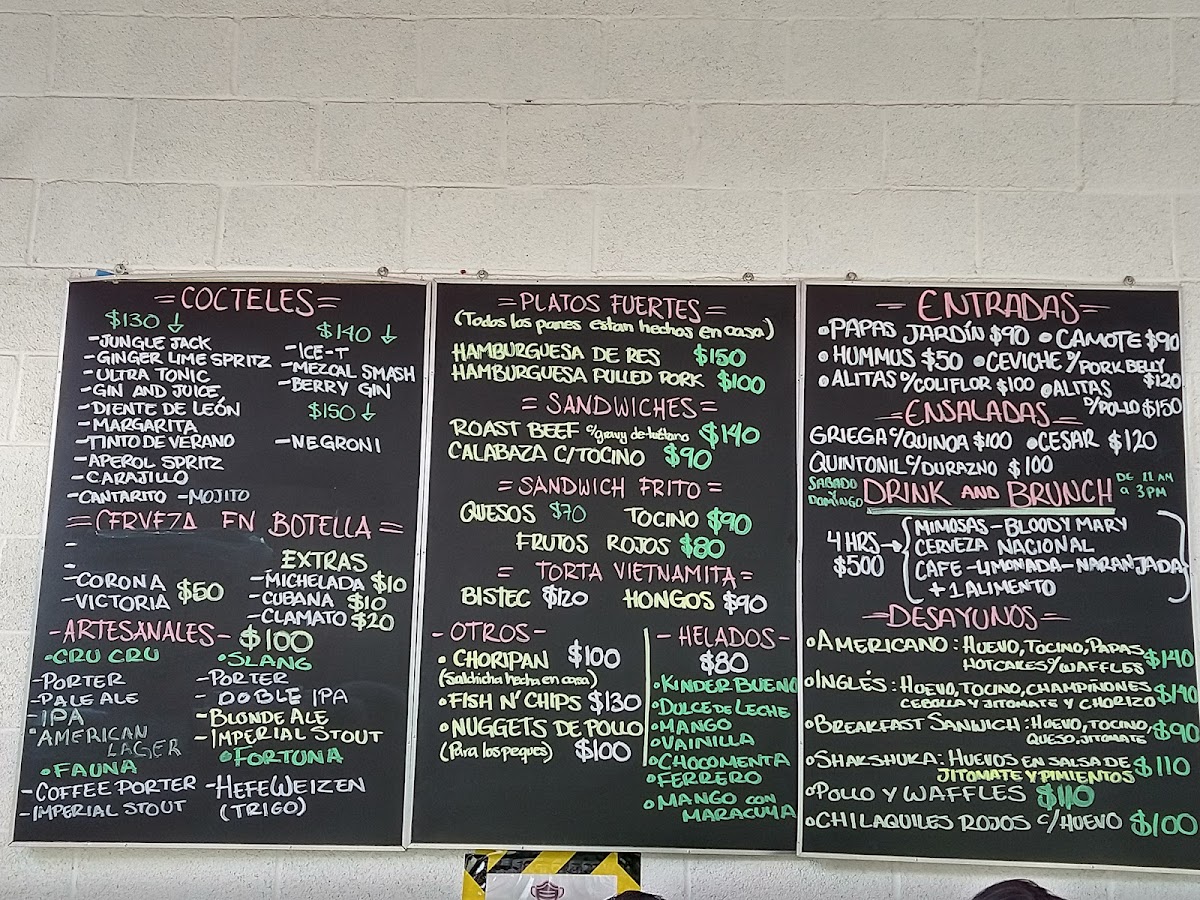 =COCTELES=
$130 ↓
-JUNGLE JACK
-GINGER LIME SPRITZ
-ULTRA TONIC
-GIN AND JUICE
-DIENTE DE LEÓN
-MARGARITA
-TINTO DE VERANO
-APEROL SPRITZ
-CARAJILLO
-CANTARITO -MOJITO
$140 ↓
-ICE-T
-MEZCAL SMASH
-BERRY GIN
$150 ↓
-NEGRONI
=CERVEZA EN BOTELLA=
-
-
-CORONA
-VICTORIA $50
EXTRAS
-MICHELADA $10
-CUBANA $10
-CLAMATO $20
-ARTESANALES- $100
•CRU CRU
-PORTER
-PALE ALE
-IPA
•AMERICAN LAGER
•FAUNA
-COFFEE PORTER
-IMPERIAL STOUT
•SLANG
-PORTER
- DOBLE IPA
-BLONDE ALE
-IMPERIAL STOUT
•FORTUNA
-HEFEWEIZEN
(TRIGO)
=PLATOS FUERTES=
(Todos los panes estan hechos en casa)
HAMBURGUESA DE RES $150
HAMBURGUESA PULLED PORK $100
=SANDWICHES=
ROAST BEEF c/gravy de tuétano $140
CALABAZA C/TOCINO $90
=SANDWICH FRITO=
QUESOS $70 TOCINO $90
FRUTOS ROJOS $80
= TORTA VIETNAMITA=
BISTEC $120 HONGOS $90
-OTROS-
• CHORIPAN $100
(Salchicha hecha en casa)
•FISH N' CHIPS $130
•NUGGETS DE POLLO
(Para los peques) $100
-HELADOS-
$80
•KINDER BUENO
•DULCE DE LECHE
•MANGO
•VAINILLA
•CHOCOMENTA
•FERRERO
•MANGO CON
MARACUYA
=ENTRADAS=
•PAPAS JARDÍN $90 •CAMOTE $90
•HUMMUS $50 •CEVICHE c/PORK BELLY $120
•ALITAS D/COLIFLOR $100 •ALITAS
D/POLLO $150
=ENSALADAS=
GRIEGA c/QUINOA $100 •CESAR $120
QUINTONIL c/DURAZNO $100
SABADO Y DOMINGO DRINK AND BRUNCH DE 11 AM a 3PM
4 HRS→
$500
MIMOSAS-BLOODY MARY
CERVEZA NACIONAL
CAFE-LIMONADA-NARANJADA
+1 ALIMENTO
=DESAYUNOS=
•AMERICANO: HUEVO, TOCINO, PAPAS
HOTCAKES Y/WAFFLES $140
•INGLÉS: HUEVO, TOCINO, CHAMPIÑONES
CEBOLLA Y JITOMATE Y CHORIZO $140
•BREAKFAST SANWICH: HUEVO, TOCINO,
QUESO, JITOMATE $90
•SHAKSHUKA: HUEVOS EN SALSA DE
JITOMATE Y PIMIENTOS $110
•POLLO Y WAFFLES $110
•CHILAQUILES ROJOS C/HUEVO $100